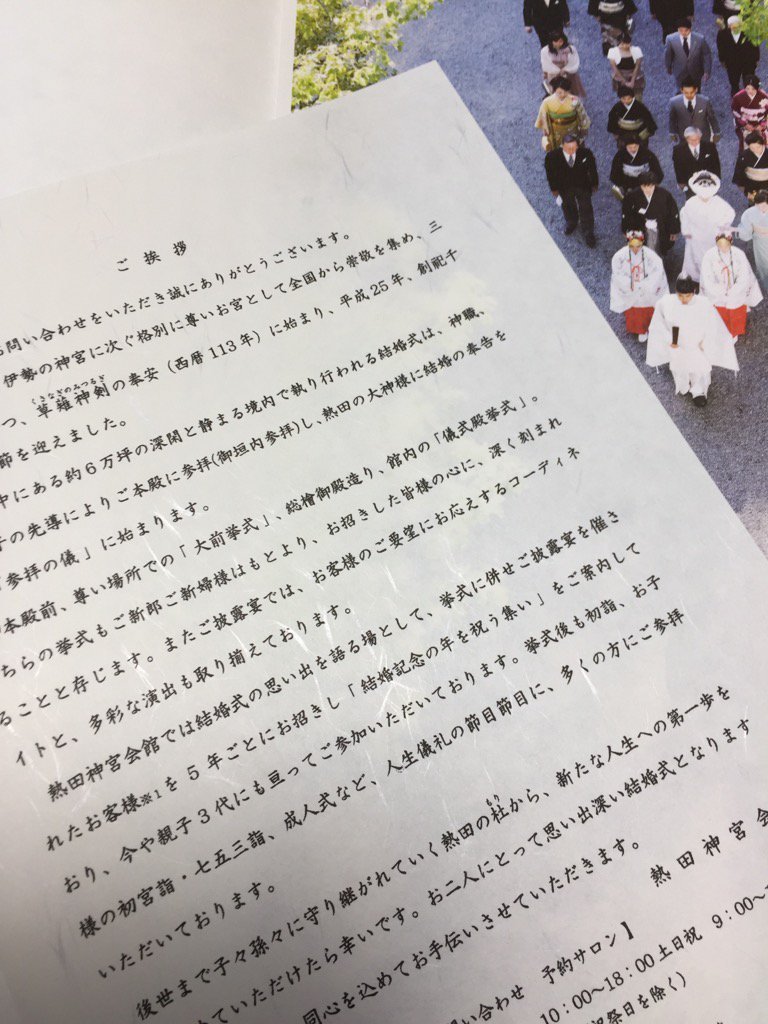 ご挨拶
問い合わせをいただき誠にありがとうございます。
伊勢の神宮に次ぐ格別に尊いお宮として全国から崇敬を集め、三
つ、草薙神剣の奉安（西暦113年）に始まり、平成25年、創祀千
くさなぎのみつるぎ
節を迎えました。
中にある約6万坪の深閑と静まる境内で執り行われる結婚式は、神職、
の先導によりご本殿に参拝(御垣内参拝)し、熱田の大神様に結婚の奉告を
参拝の儀」に始まります。
本殿前、尊い場所での「大前挙式」、総檜御殿造り、館内の「儀式殿挙式」。
ちらの挙式もご新郎ご新婦様はもとより、お招きした皆様の心に、深く刻まれ
ることと存じます。またご披露宴では、お客様のご要望にお応えするコーディネ
イトと、多彩な演出も取り揃えております。
熱田神宮会館では結婚式の思い出を語る場として、挙式に併せご披露宴を催さ
れたお客様※1を5年ごとにお招きし「結婚記念の年を祝う集い」をご案内して
おり、今や親子3代にも亘ってご参加いただいております。挙式後も初詣、お子
様の初宮詣・七五三詣、成人式など、人生儀礼の節目節目に、多くの方にご参拝
いただいております。
後世まで子々孫々に守り継がれていく熱田の杜から、新たな人生への第一歩を
もり
ていただけたら幸いです。お二人にとって思い出深い結婚式となります
同心を込めてお手伝いさせていただきます。
熱田神宮会
い合わせ 予約サロン】
10:00～18:00 土日祝 9:00～
祭日を除く）